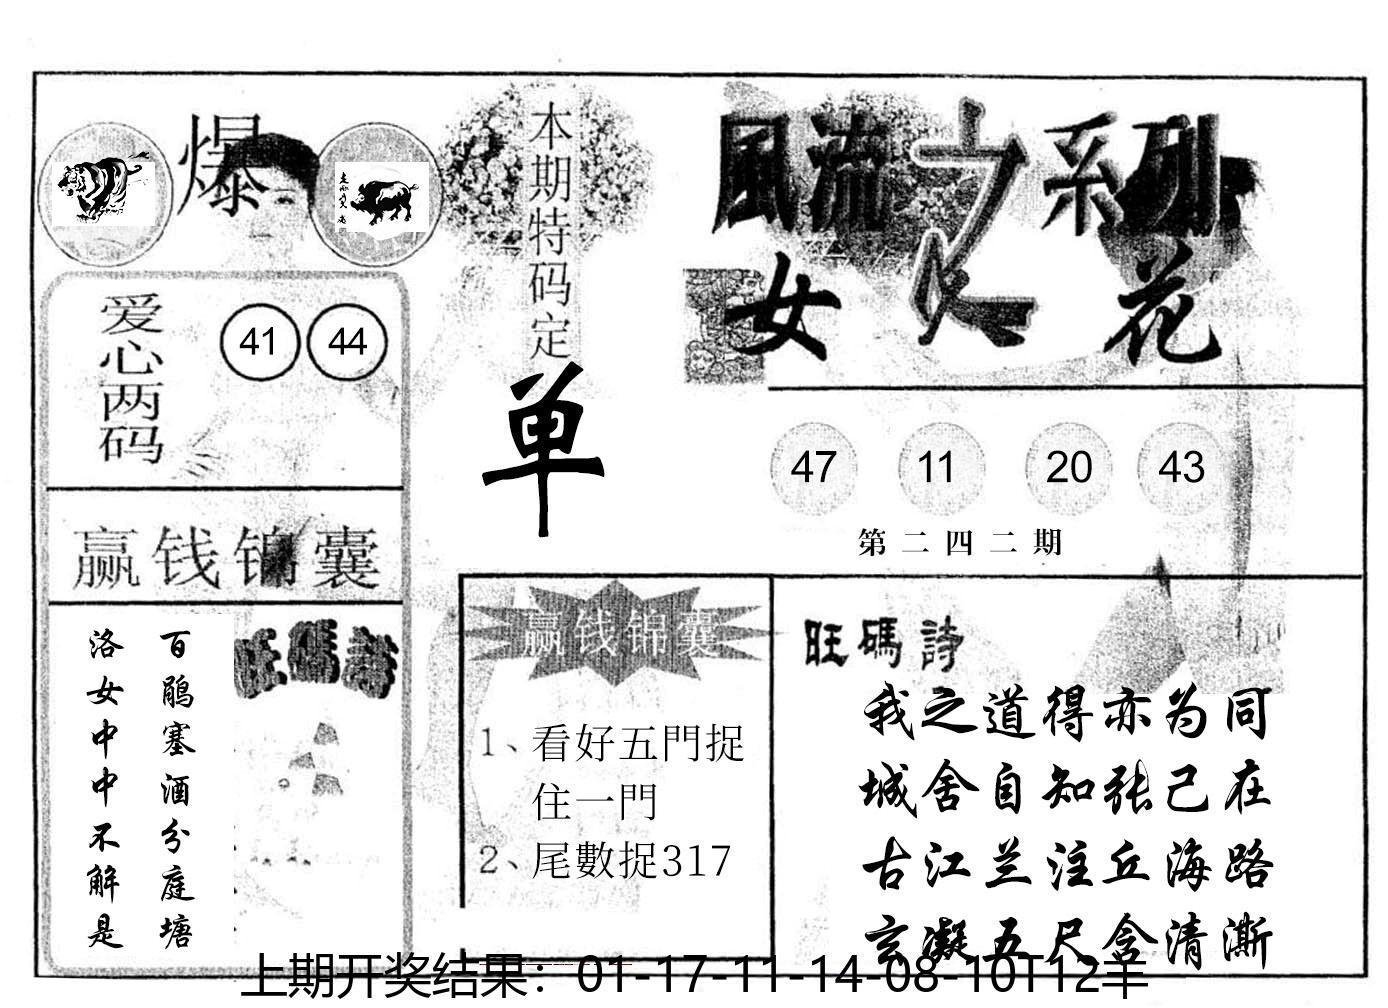 爆
本期特码定
单
風流之系列
女人花
爱心两码
41 44
47 11 20 43
第二四二期
赢钱锦囊
百鹃塞酒分庭塘
洛女中中不解是
旺碼詩
赢钱锦囊
1、看好五門捉
住一門
2、尾數捉317
旺碼詩
我之道得亦为同
城舍自知张己在
古江兰注丘海路
玄凝五尺含清澌
上期开奖结果：01-17-11-14-08-10T12羊